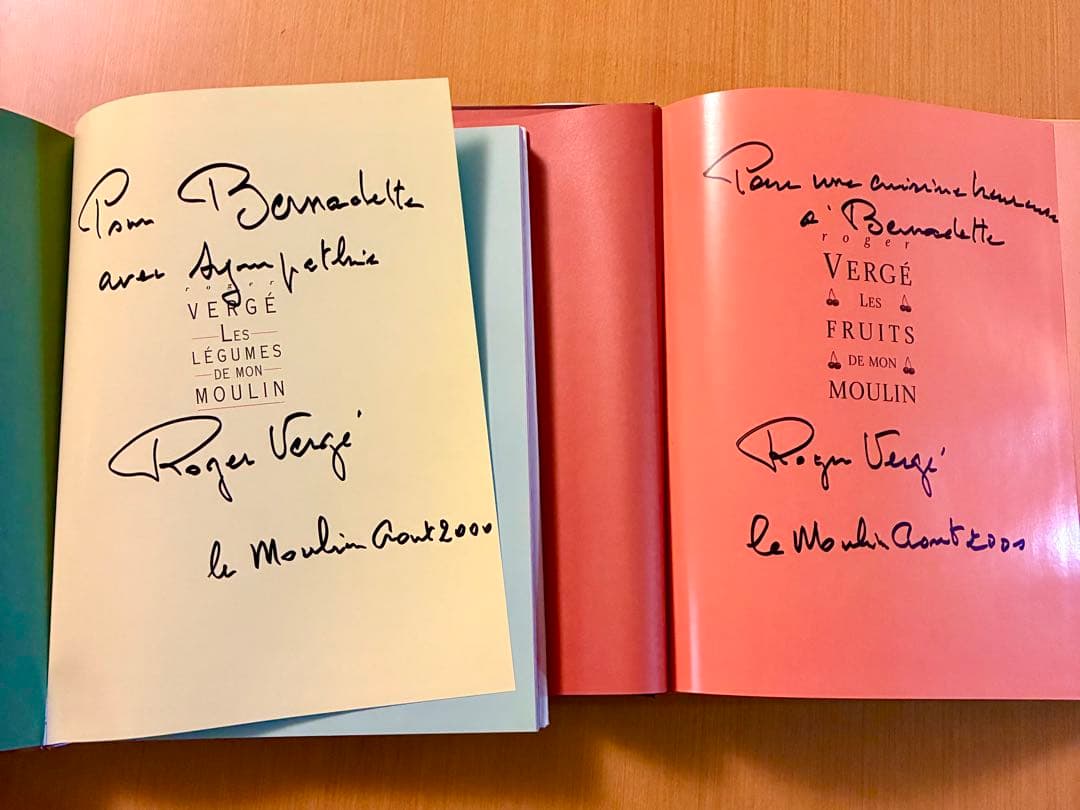 Pour Bernadette
avec sympathie
roger
VERGÉ
LES
LÉGUMES
DE MON
MOULIN
Roger Vergé
le Moulin Aout 2000
Pour une cuisine heureuse
à Bernadette
roger
VERGÉ
LES
FRUITS
DE MON
MOULIN
Roger Vergé
le Moulin Aout 2000